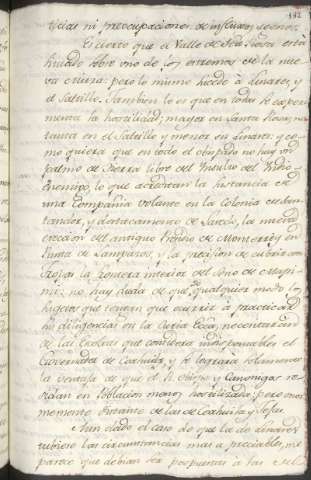 132
ticias ni preocupaciones de influxos agenos.
Es cierto que el Valle de Sta. Rosa está
situado sobre uno de los extremos de la nue
va curia: pero lo mismo sucede á Linares, y
el Saltillo. Tambien lo es que en todas se exper
menta la hostilidad; mayor en Santa Rosa; me
diana en el Saltillo y menor en Linares: y co
mo quiera que en todo el obispado no hay un
palmo de tierra libre del insulto del Indio
Enemigo, lo que acreditan la instancia de
una Compañia volante en la Colonia de San
tander, y destacamento de la nueva
ereccion del antiguo Presidio de Monterrey en
Punta de Lampazos, y la precision de cubrir con
tropas la frontera interior del Seno de
no hay duda de que de qualquier modo los
sugetos que tengan que ocurrir á practicar
sus diligencias en la Curia Ecca. necesitarian
de las Escoltas que considera indispensables el
Governador de Coahuila, y se lograria solamente
la ventaja de que el R. Obispo y Canonigos re
sidan en Poblacion menos hostilizada; pero
momento distante de las de Coahuila y Texas
Aun dado el caso de que la de Linares
tubiese las circunstancias mas apreciables, me
parece que debian ser pospuestas á las